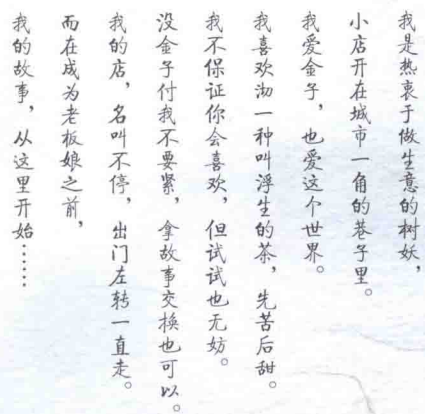 我是热衷于做生意的树妖，
小店开在城市一角的巷子里。
我爱金子，也爱这个世界。
我喜欢沏一种叫浮生的茶，先苦后甜。
我不保证你会喜欢，但试试也无妨。
没金子付我不要紧，拿故事交换也可以。
我的店，名叫不停，出门左转一直走。
而在成为老板娘之前，
我的故事，从这里开始……